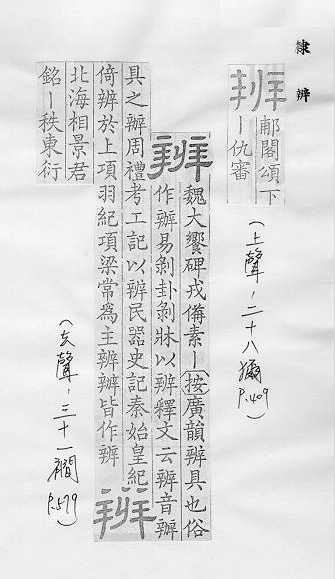 隸辨
辨
郙閣頌下
丨仇審
(上聲，二十八獮 P.409)
辨
魏大饗碑戎備素丨按廣韻辨具也俗
作辦易剥卦剥牀以辨釋文云辨音辦
具之辦周禮考工記以辨民器史記秦始皇紀
倚辨於上項羽紀項梁常為主辨辨皆作辦
辨
北海相景君
銘丨秩東衍
(去聲，三十一襉 P.579)